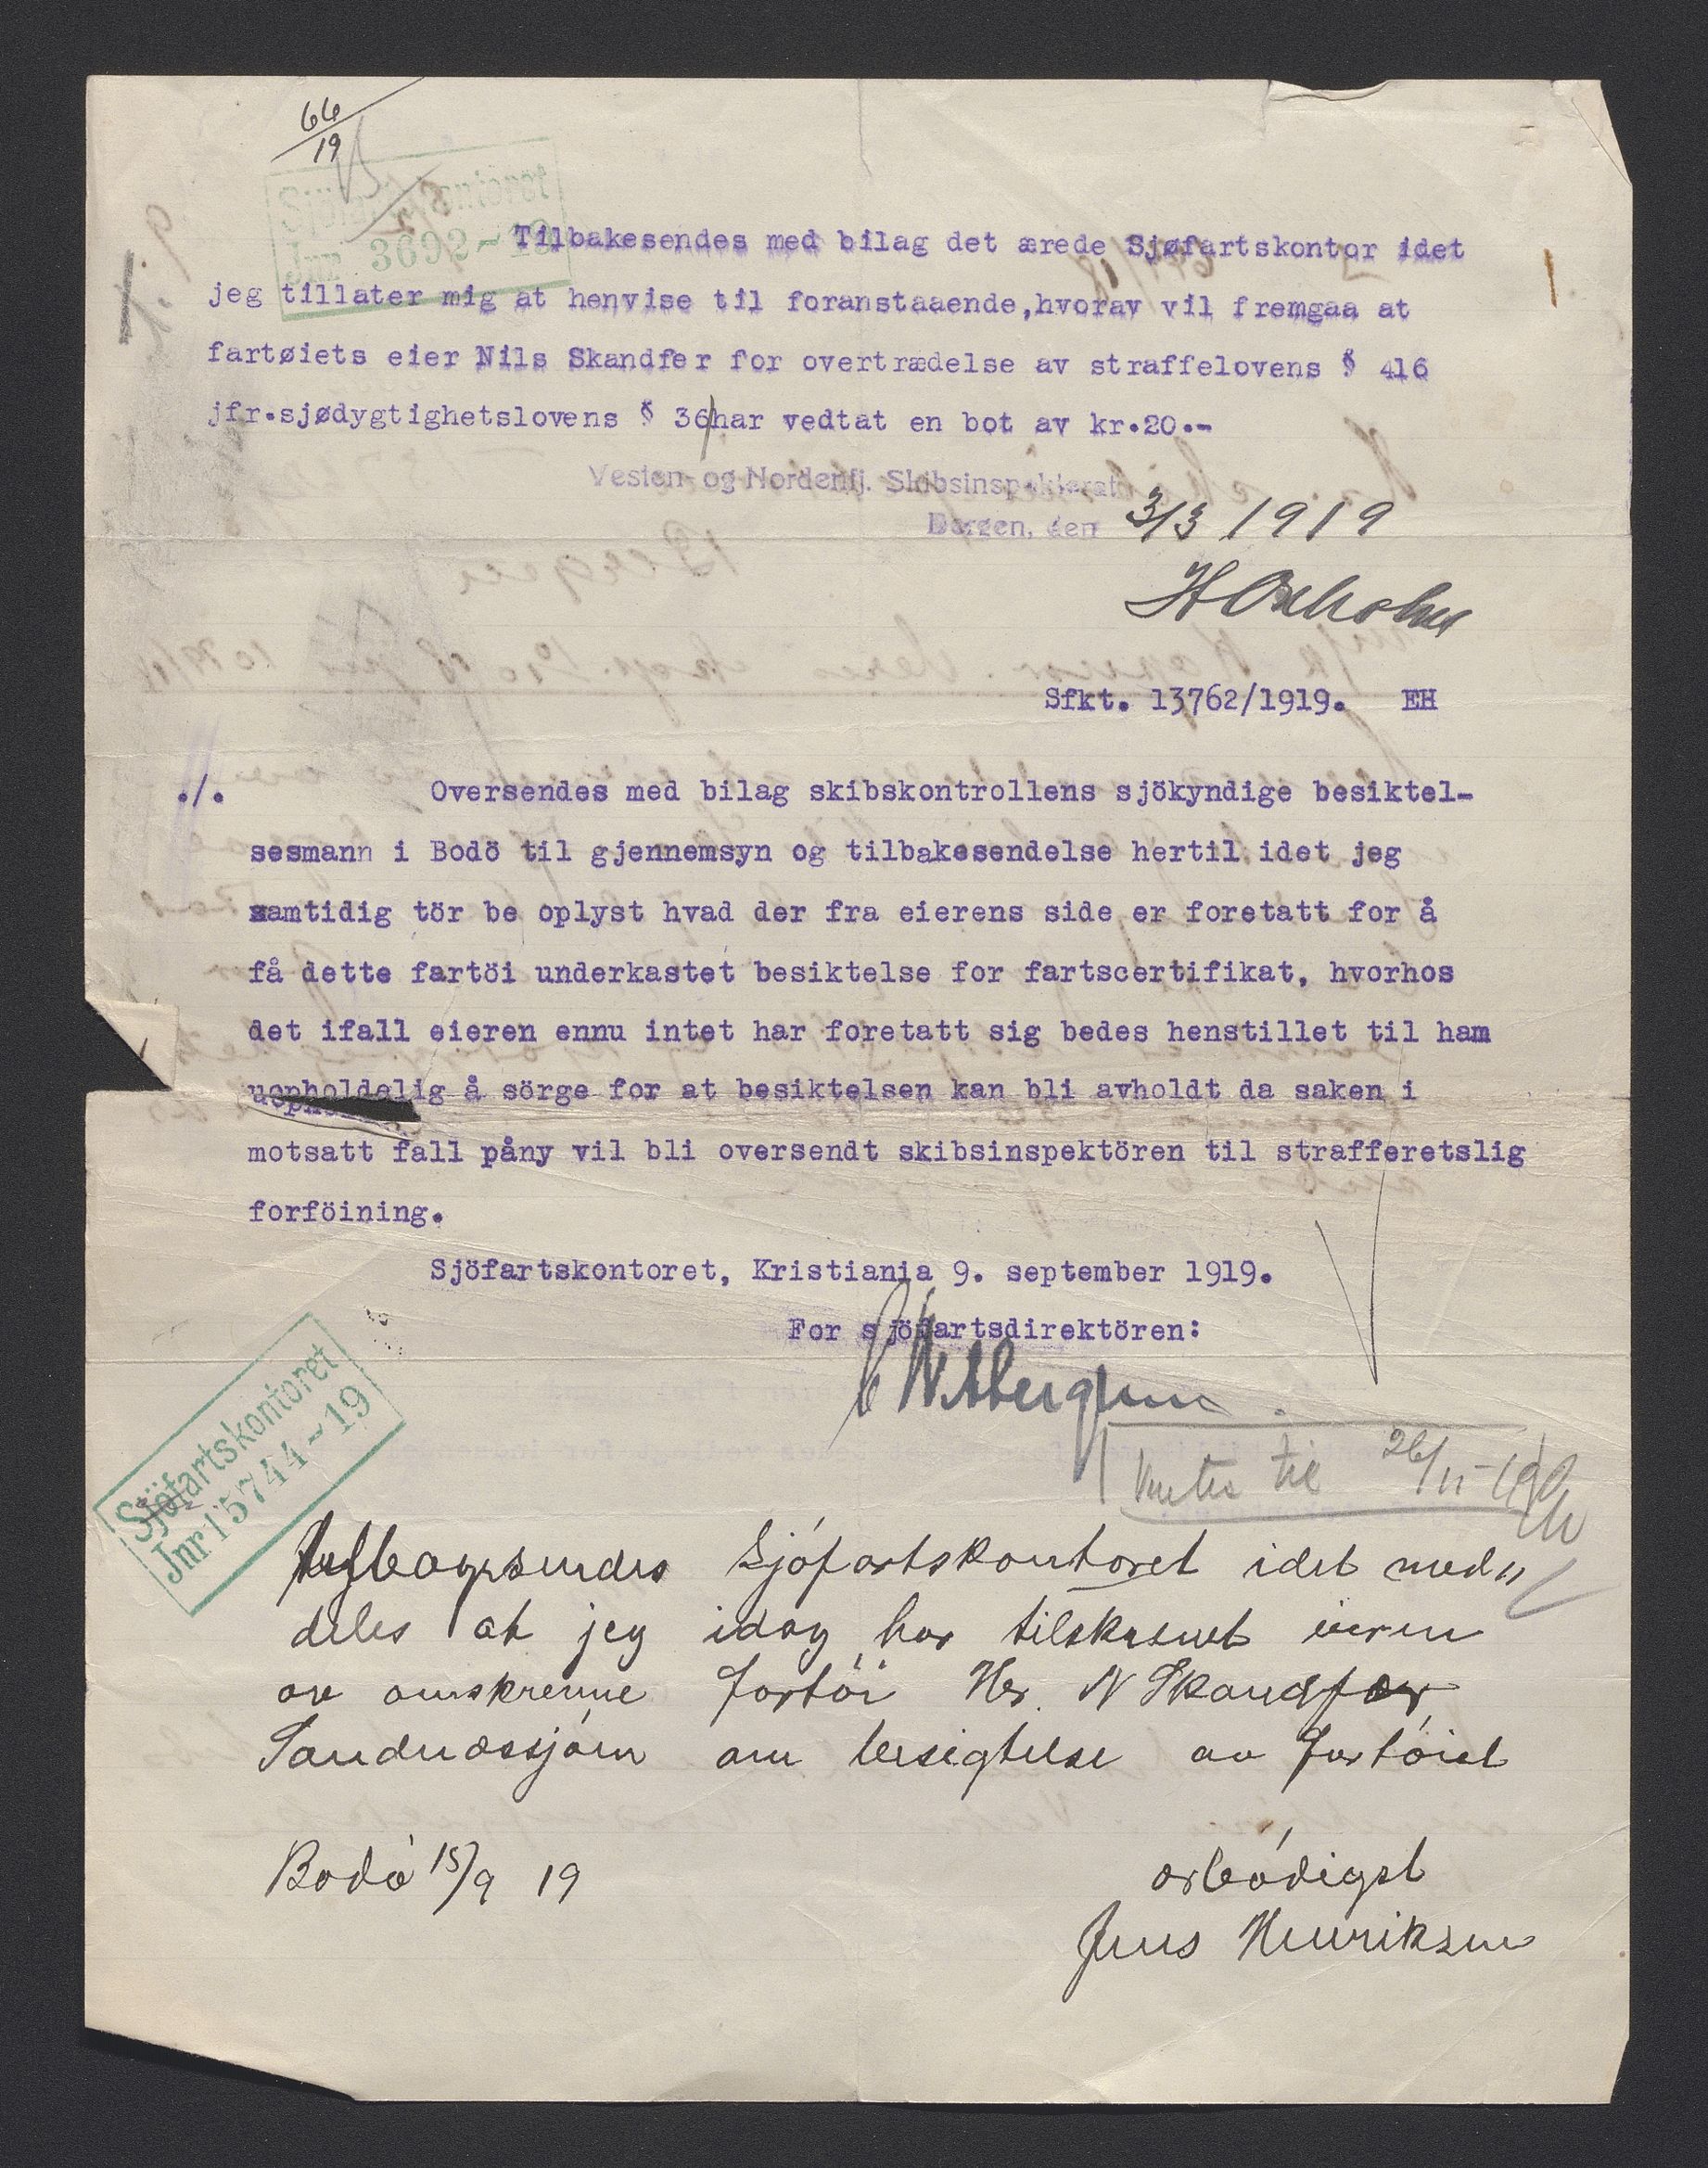 66/19
Sjöfartskontoret
Jnr. 3692-19
Tilbakesendes med bilag det ærede Sjøfartskontor idet
jeg tillater mig at henvise til foranstaaende,hvorav vil fremgaa at
fartøiets eier Nils Skandfer for overtrædelse av straffelovens § 416
jfr.sjødygtighetslovens § 36 har vedtat en bot av kr.20.-
Vesten- og Nordenfj. Skibsinspektorat
Bergen, den 3/3 1919
Sfkt. 13762/1919. EH
./. Oversendes med bilag skibskontrollens sjökyndige besiktel-
sesmann i Bodö til gjennemsyn og tilbakesendelse hertil idet jeg
samtidig tör be oplyst hvad der fra eierens side er foretatt for å
få dette fartöi underkastet besiktelse for fartscertifikat, hvorhos
det ifall eieren ennu intet har foretatt sig bedes henstillet til ham
uopholdelig å sörge for at besiktelsen kan bli avholdt da saken i
motsatt fall påny vil bli oversendt skibsinspektören til strafferetslig
forföining.
Sjöfartskontoret, Kristiania 9. september 1919.
For sjöfartsdirektören:
Sjöfartskontoret
Jnr 15744-19
26/11-19
Sjöfartskontoret idet med"
deles at jeg idag har tilskrevet eieren
av omskrevne fartöi Hr. N Skandfær
Sandnæssjöen om besigtelse av fartöiet
Bodö 15/9 19
ærbödigst
Jens Henriksen